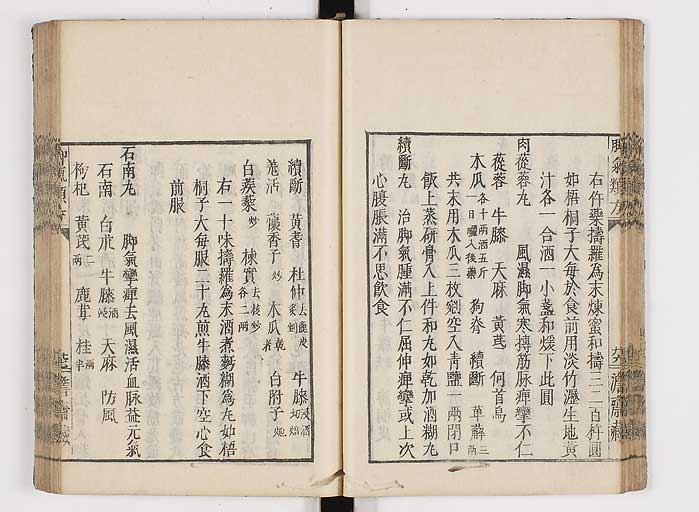 右件藥擣羅為末煉蜜和擣三二百杵圓
如梧桐子大每於食前用淡竹瀝生地黃
汁各一合酒一小盞和煖下此圓
肉蓯蓉丸 風濕脚氣寒搏筋脉癉攣不仁
蓯蓉 牛膝 天麻 黃芪 何首烏
木瓜各十兩酒五斤一日曬入後藥 狗脊 續斷 萆薢三兩
共末用木瓜三枚剜空入青鹽一兩閉口
飯上蒸研骨入上件和丸如乾加酒糊丸
續斷丸 治脚氣腫滿不仁屈伸癉攣或上次
心腹脹滿不思飲食
續斷 黃耆 杜仲去麄皮炙剉 牛膝浸酒切焙
羗活 藿香子炒 木瓜乾者 白附子炮
白蒺藜炒 楝實去核炒各二兩
右一十味擣羅為末酒煮麪糊為丸如梧
桐子大每服二十九煎牛膝酒下空心食
前服
石南丸 脚氣攣癉去風濕活血脉益元氣
石南 白朮 牛膝酒浸 天麻 防風
枸杞 黃芪二兩 鹿茸 桂兩半
脚氣類方